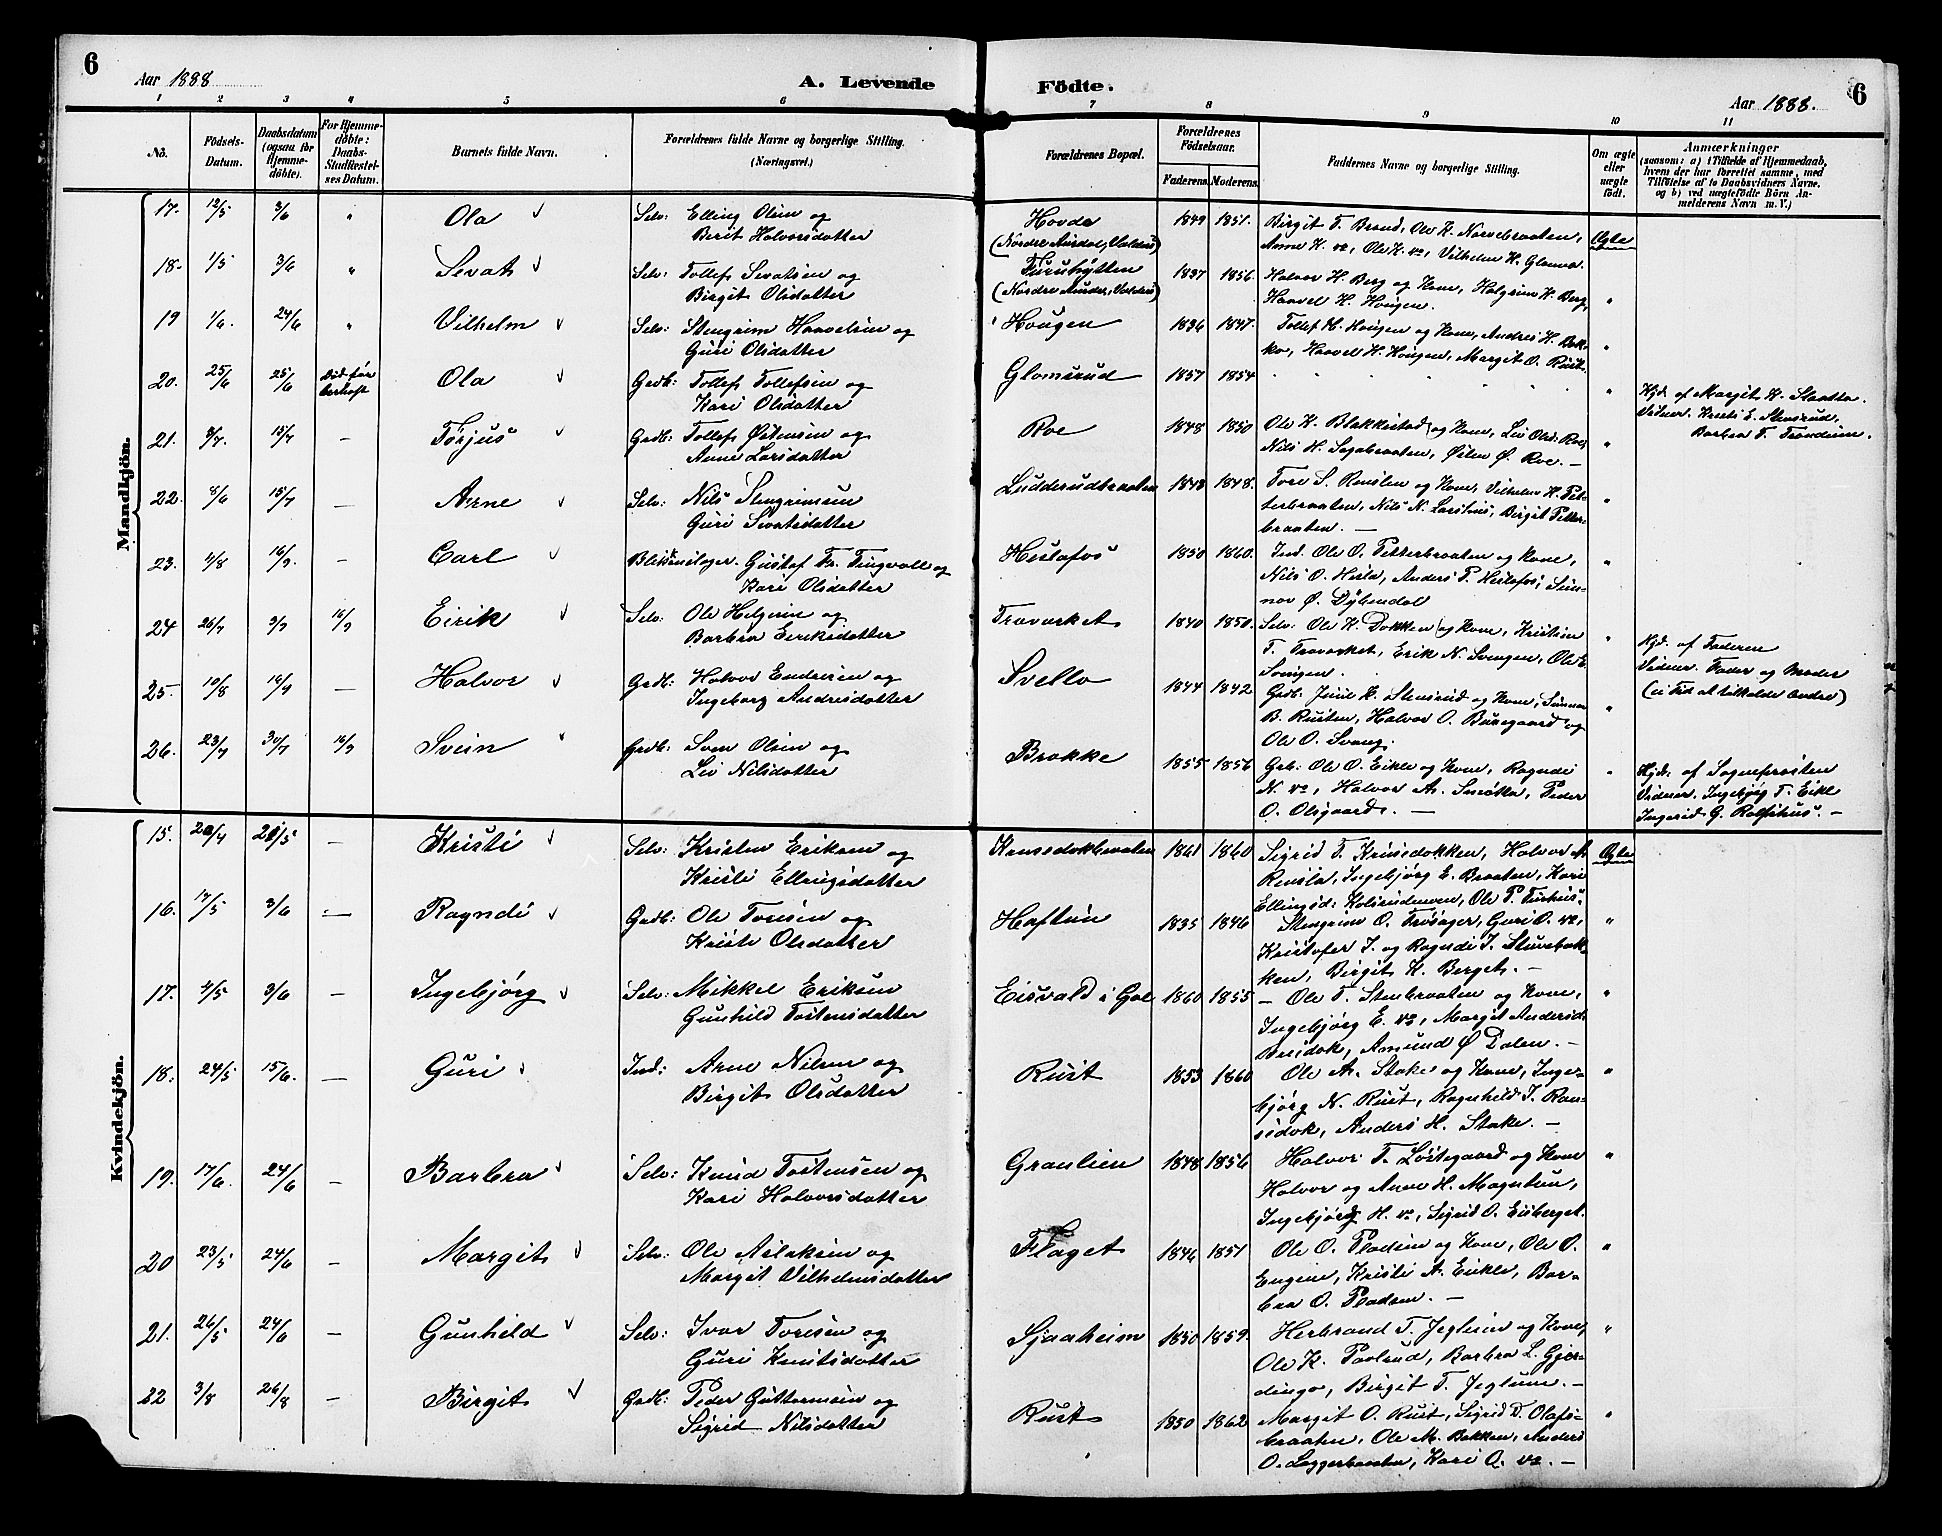 6
Aar 1888
A. Levende
Födte.
Aar 1888.
6
1 2 3 4 5 6 7 8 9 10 11
No.
Födsels-
Datum.
Daabsdatum
(ogsaa for
Hjemme-
døbte).
For Hjemme-
døbte:
Daabs-
Stadfæstel-
ses Datum.
Barnets fulde Navn.
Forældrenes fulde Navne og borgerlige Stilling.
(Næringsvei.)
Forældrenes Bopæl.
Forældrenes
Födselsaar.
Faderens. Moderens.
Faddernes Navne og borgerlige Stilling.
Om ægte
eller
uægte
født.
Anmærkninger
(saasom: a) i Tilfælde af Hjemmedaab,
hvem der har forrettet samme, med
Tilføielse af to Daabsvidners Navne.
og b) ved uægtefødte Börn An-
melderens Navn m. V.)
Mandkjön.
17. 12/5 3/6 " Ola Selv: Elling Olsen og
Berit Halvorsdatter
Hovde
(Nordre Aurdal, Valdres)
1849 1851. Birgit T. Brand, Ole H. Narvebraaten,
Anne H. ve, Ole K. ve, Vilhelm H. Glomsr. Ægte
18. 1/5 3/6 " Sevat Selv: Tollef Sevatsen og
Birgit Olsdatter
Furuhytten
(Nordre Aurdal, Valdres)
1837 1856 Halvor H. Berg og Kone, Halgrim H. Berg,
Haavel H. Hougen. "
19 1/6. 24/6 " Vilhelm Selv: Stengrim Haavelsen og
Guri Olsdatter
Hougen 1836 1847. Tollef H. Hougen og Kone, Andris H. Bak-
ko, Haavel H. Hougen, Margit O. Rust. "
20. 25/6 25/6 Død før
bekræft Ola Grdb: Tollef Tollefsen og
Kari Olsdatter
Glomsrud 1857 1854 "
Hjd. af Margit K. Slaatto.
Vidner. Kristi E. Stensrud,
Barbra T. Trondrun.
21. 3/7. 15/7 — Torjus Grdb: Tollef Østensen og
Anne Larsdatter
Roe 1848 1850 Ole K. Blakkestad og Kone, Liv Olsd: Roe,
Nils H. Sagabraaten, Østen Ø. Roe. — "
22. 8/6 15/7 — Arne Selv: Nils Stengrimsen
Guri Sevatsdatter
Ludderudbraaten 1848 1848. Tore S. Renslen og Kone, Vilhelm H. Pet-
terbraaten, Nils N. Larshus, Birgit Petter-
braaten. — "
23. 4/8 16/9. — Carl Blikkenslager. Gustaf Fr. Tingvall og
Kari Olsdatter
Heslafos 1850 1860. Ind. Ole O. Petterbraaten og Kone,
Nils O. Hesla, Anders P. Heslafos, Sun-
nov Ø. Dybendal "
24 26/7 3/9 16/9 Eirik Selv: Ole Helgesen og
Barbra Eeriksdatter
Travarket 1840 1850. Selv: Ole K. Dokken og Kone, Kristian
T. Travarket, Erik N. Svengen, Ole E.
Svengen. "
Hjd. af Faderen
Vidner. Fader og Moder
(ei Tid at tilkalde andre)
25. 10/8 16/9 — Halvor Grdb: Halvor Endresen og
Ingeborg Andersdatter
Svello 1844 1842 Gdb. Juul K. Stensrud og Kone, Sunnov
B. Rusten, Halvor O. Buregaard og
Ole O. Svang. "
26. 23/7 30/7 16/9 Svein Grdb: Sven Olsen og
Liv Nilsdatter
Brokke 1855 1856 Grb: Ole O. Eikle og Kone, Ragndi
N. ve, Halvor A. Smøtta, Peder
O. Olsgaard. — "
Hjd: af Sogneprästen
Vidner. Ingebjørg T. Eikl
Ingerid G. Rolfshus. —
Kvindekjön.
15. 20/4 21/5 — Kristi Selv: Kristen Eriksen og
Kristi Ellingsdatter
Krusedokbraaten 1861 1860 Sigrid T. Krusedokken, Halvor A.
Rensla, Ingebjørg E. Braaten, Kari
Ellingsd: Kolsrudmoen, Ole P. Turhus. Ægte
16. 17/5 3/6 — Ragndi Grdb: Ole Toresen og
Kristi Olsdatter
Haftun 1835 1846 Stengrim O. Trøsager, Guri O. ve,
Kristofer J. og Ragndi J. Sturebak-
ken, Birgit K. Berget. — "
17. 4/5 3/6 — Ingebjørg Selv: Mikkel Eriksen
Gunhild Tostensdatter
Eisvald i Gol 1860 1855 — Ole T. Stenbraaten og Kone,
Ingebjørg E. ve, Margit Andersd.
Breidok, Amund Ø Dalen. — "
18. 24/5 15/6. — Guri Ind: Arne Nilsen og
Birgit Olsdatter
Rust 1853 1860 Ole A. Stake og Kone, Inge-
bjørg N. Rust, Ragnhild J. Ran-
sidok, Anders H. Stake. — "
19. 17/6. 24/6 — Barbra Selv: Knud Tostensen og
Kari Halvorsdatter
Graulien 1848 1856 Halvor T. Løstegaard og Kone
Halvor og Anne H. Magnhun,
Ingebjørg H. ve, Sigrid O. Eisberget. "
20 23/5 24/6 — Margit Selv: Ole Aslaksen og
Margit Vilhelmsdatter
Flaget 1846 1851 Ole O. Pladsen og Kone, Ole O.
Engene, Kristi A. Eikle, Bar-
bra O. Pladsen. — "
21. 26/5 24/6 — Gunhild Selv: Ivar Toresen og
Guri Knutsdatter
Sjaaheim 1850 1859. Herbrand T. Jeglum og Kone,
Ole K. Paalsrud, Barbra L. Gjer-
dingo, Birgit T. Jeglum. — "
22 3/8 26/8 — Birgit Grdb: Peder Guttormsen og
Sigrid Nilsdatter
Rust 1850 1862 Margit O. Rust, Sigrid T. Olafs-
braaten, Ole M. Bakken, Anders
O. Laggerbraaten, Kari O. ve. — "